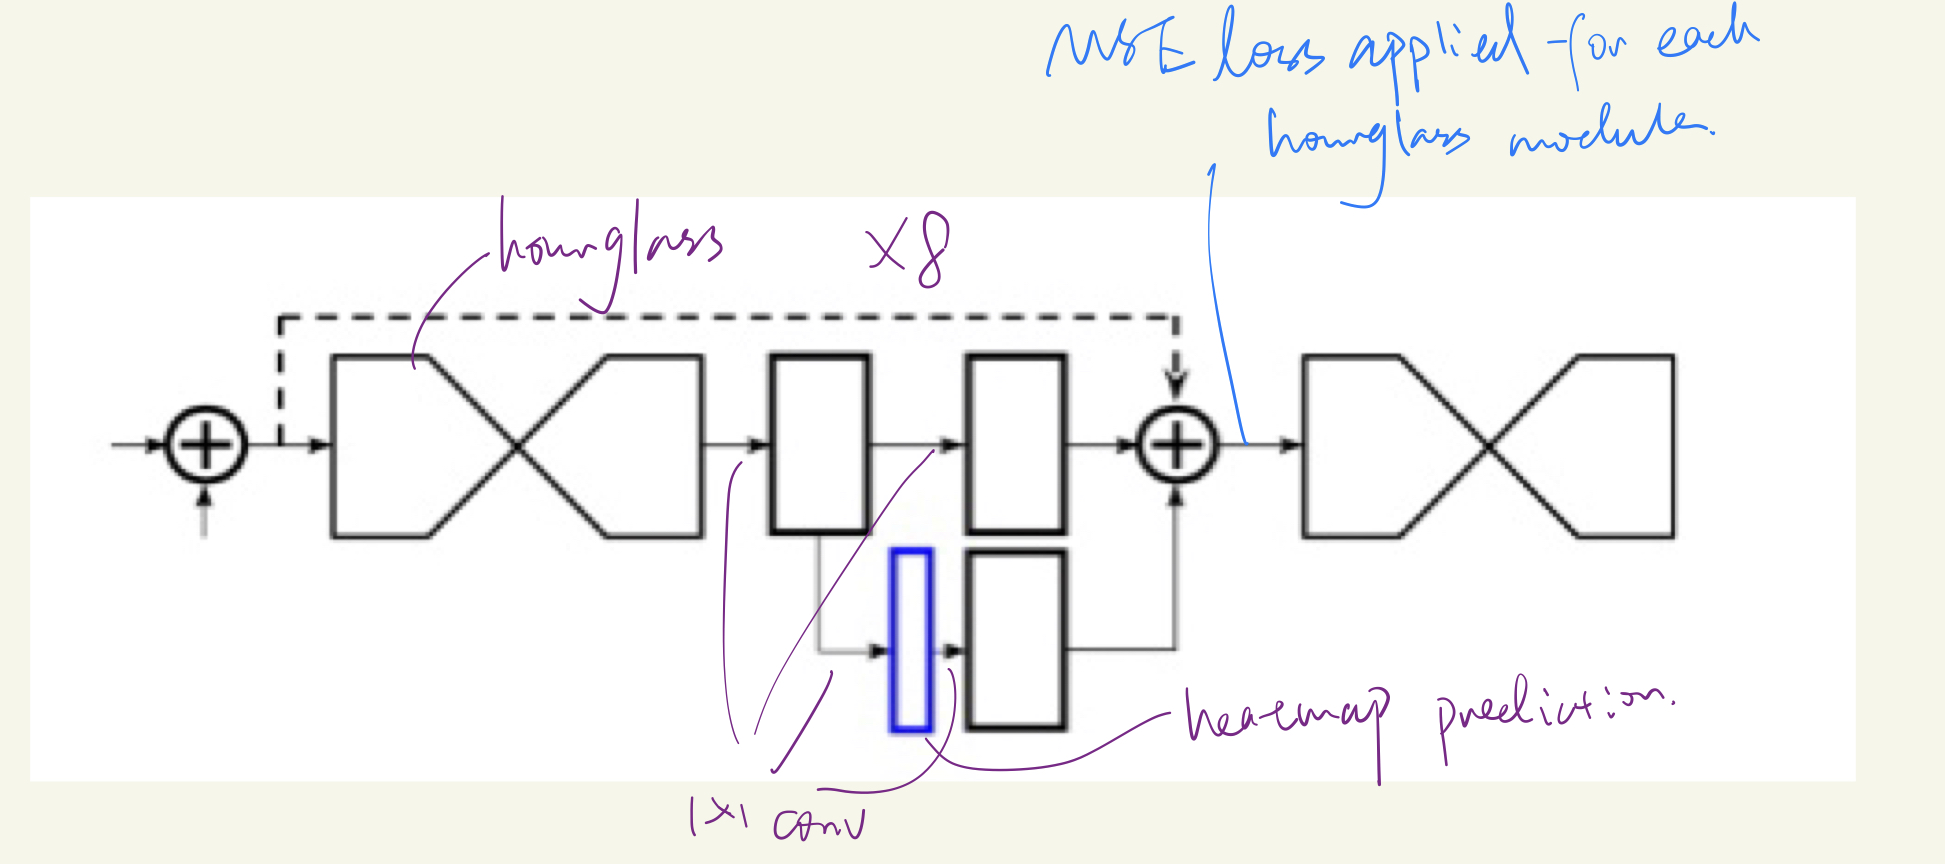 MSE loss applied for each
hourglass module.
hourglass
×8
heatmap prediction.
1×1 conv